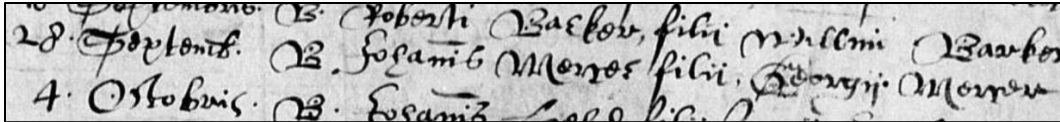 Septembris. B. Roberti Barker, filii Willmi Barker
28. Septemb. B. Johanis Mercer filii Georgij Mercer
4. Octobris. B. Johanis